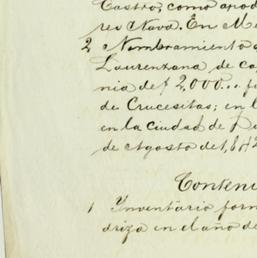 Castro, como apod
res Nava. En Me
2 Nombramiento d
Laurenzana de ca
nia de $ 2,000... f
de Crucesitas; en l
en la ciudad de P
de Agosto de 1,842
Conteni
1 Inventario form
driza en el año de